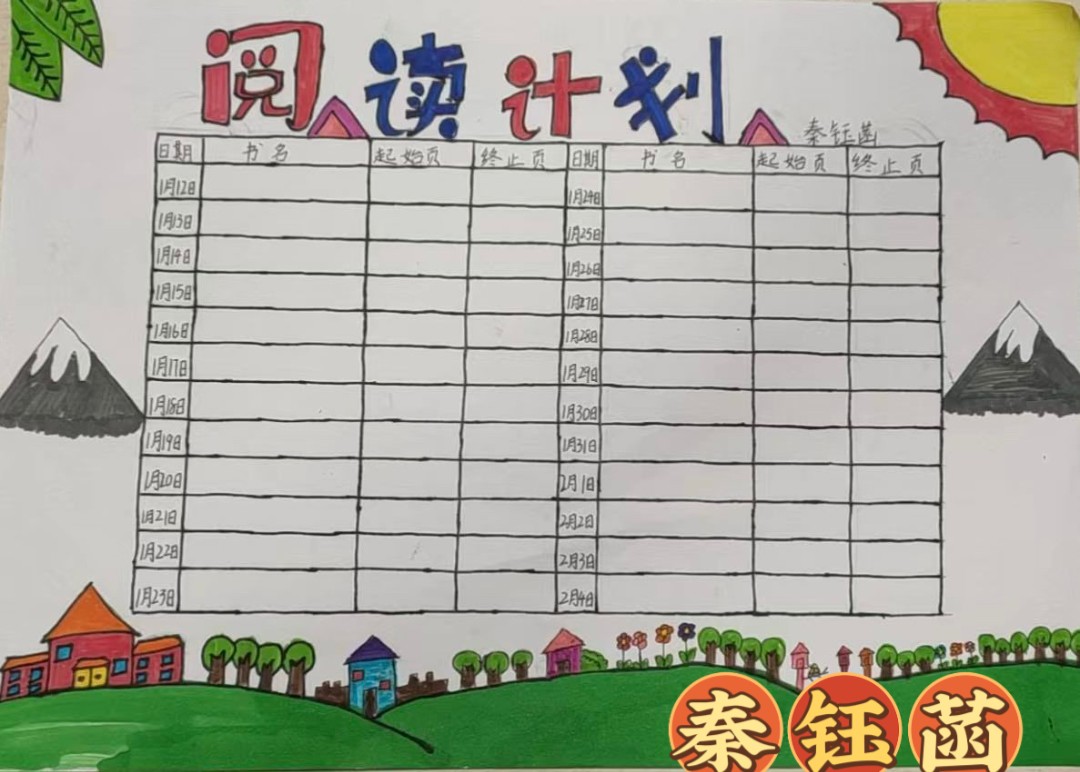 阅读计划
秦钰菡
日期 书名 起始页 终止页 日期 书名 起始页 终止页
1月12日 1月24日
1月13日 1月25日
1月14日 1月26日
1月15日 1月27日
1月16日 1月28日
1月17日 1月29日
1月18日 1月30日
1月19日 1月31日
1月20日 2月1日
1月21日 2月2日
1月22日 2月3日
1月23日 2月4日
秦钰菡